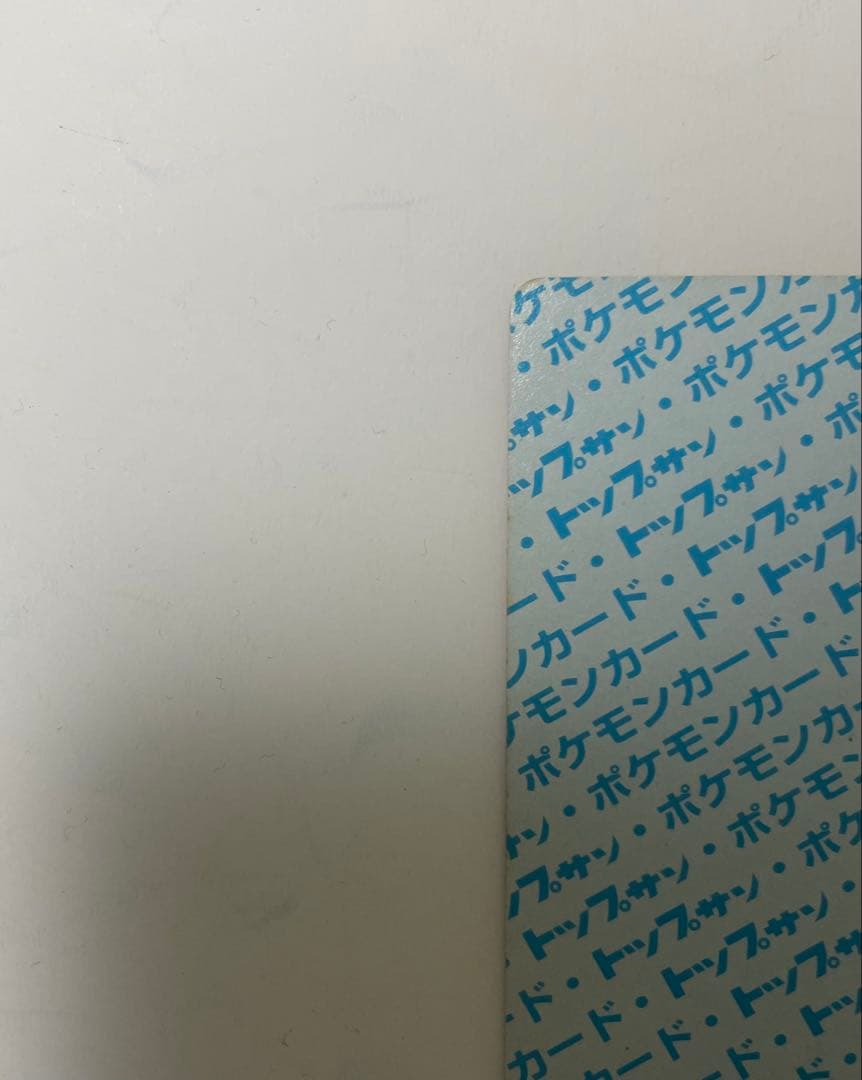 ポケモン
・ポケモンカ
サン・ポケモンカ
トップサン・ポケモ
・トップサン・ポ
ード・トップサン
ンカード・トップ
ケモンカード・ト
ポケモンカード
ン・ポケモンカ
ップサン・ポケモン
トップサン・ポケ
ド・トップサン・
カード・トップサン
ンカード・トッ